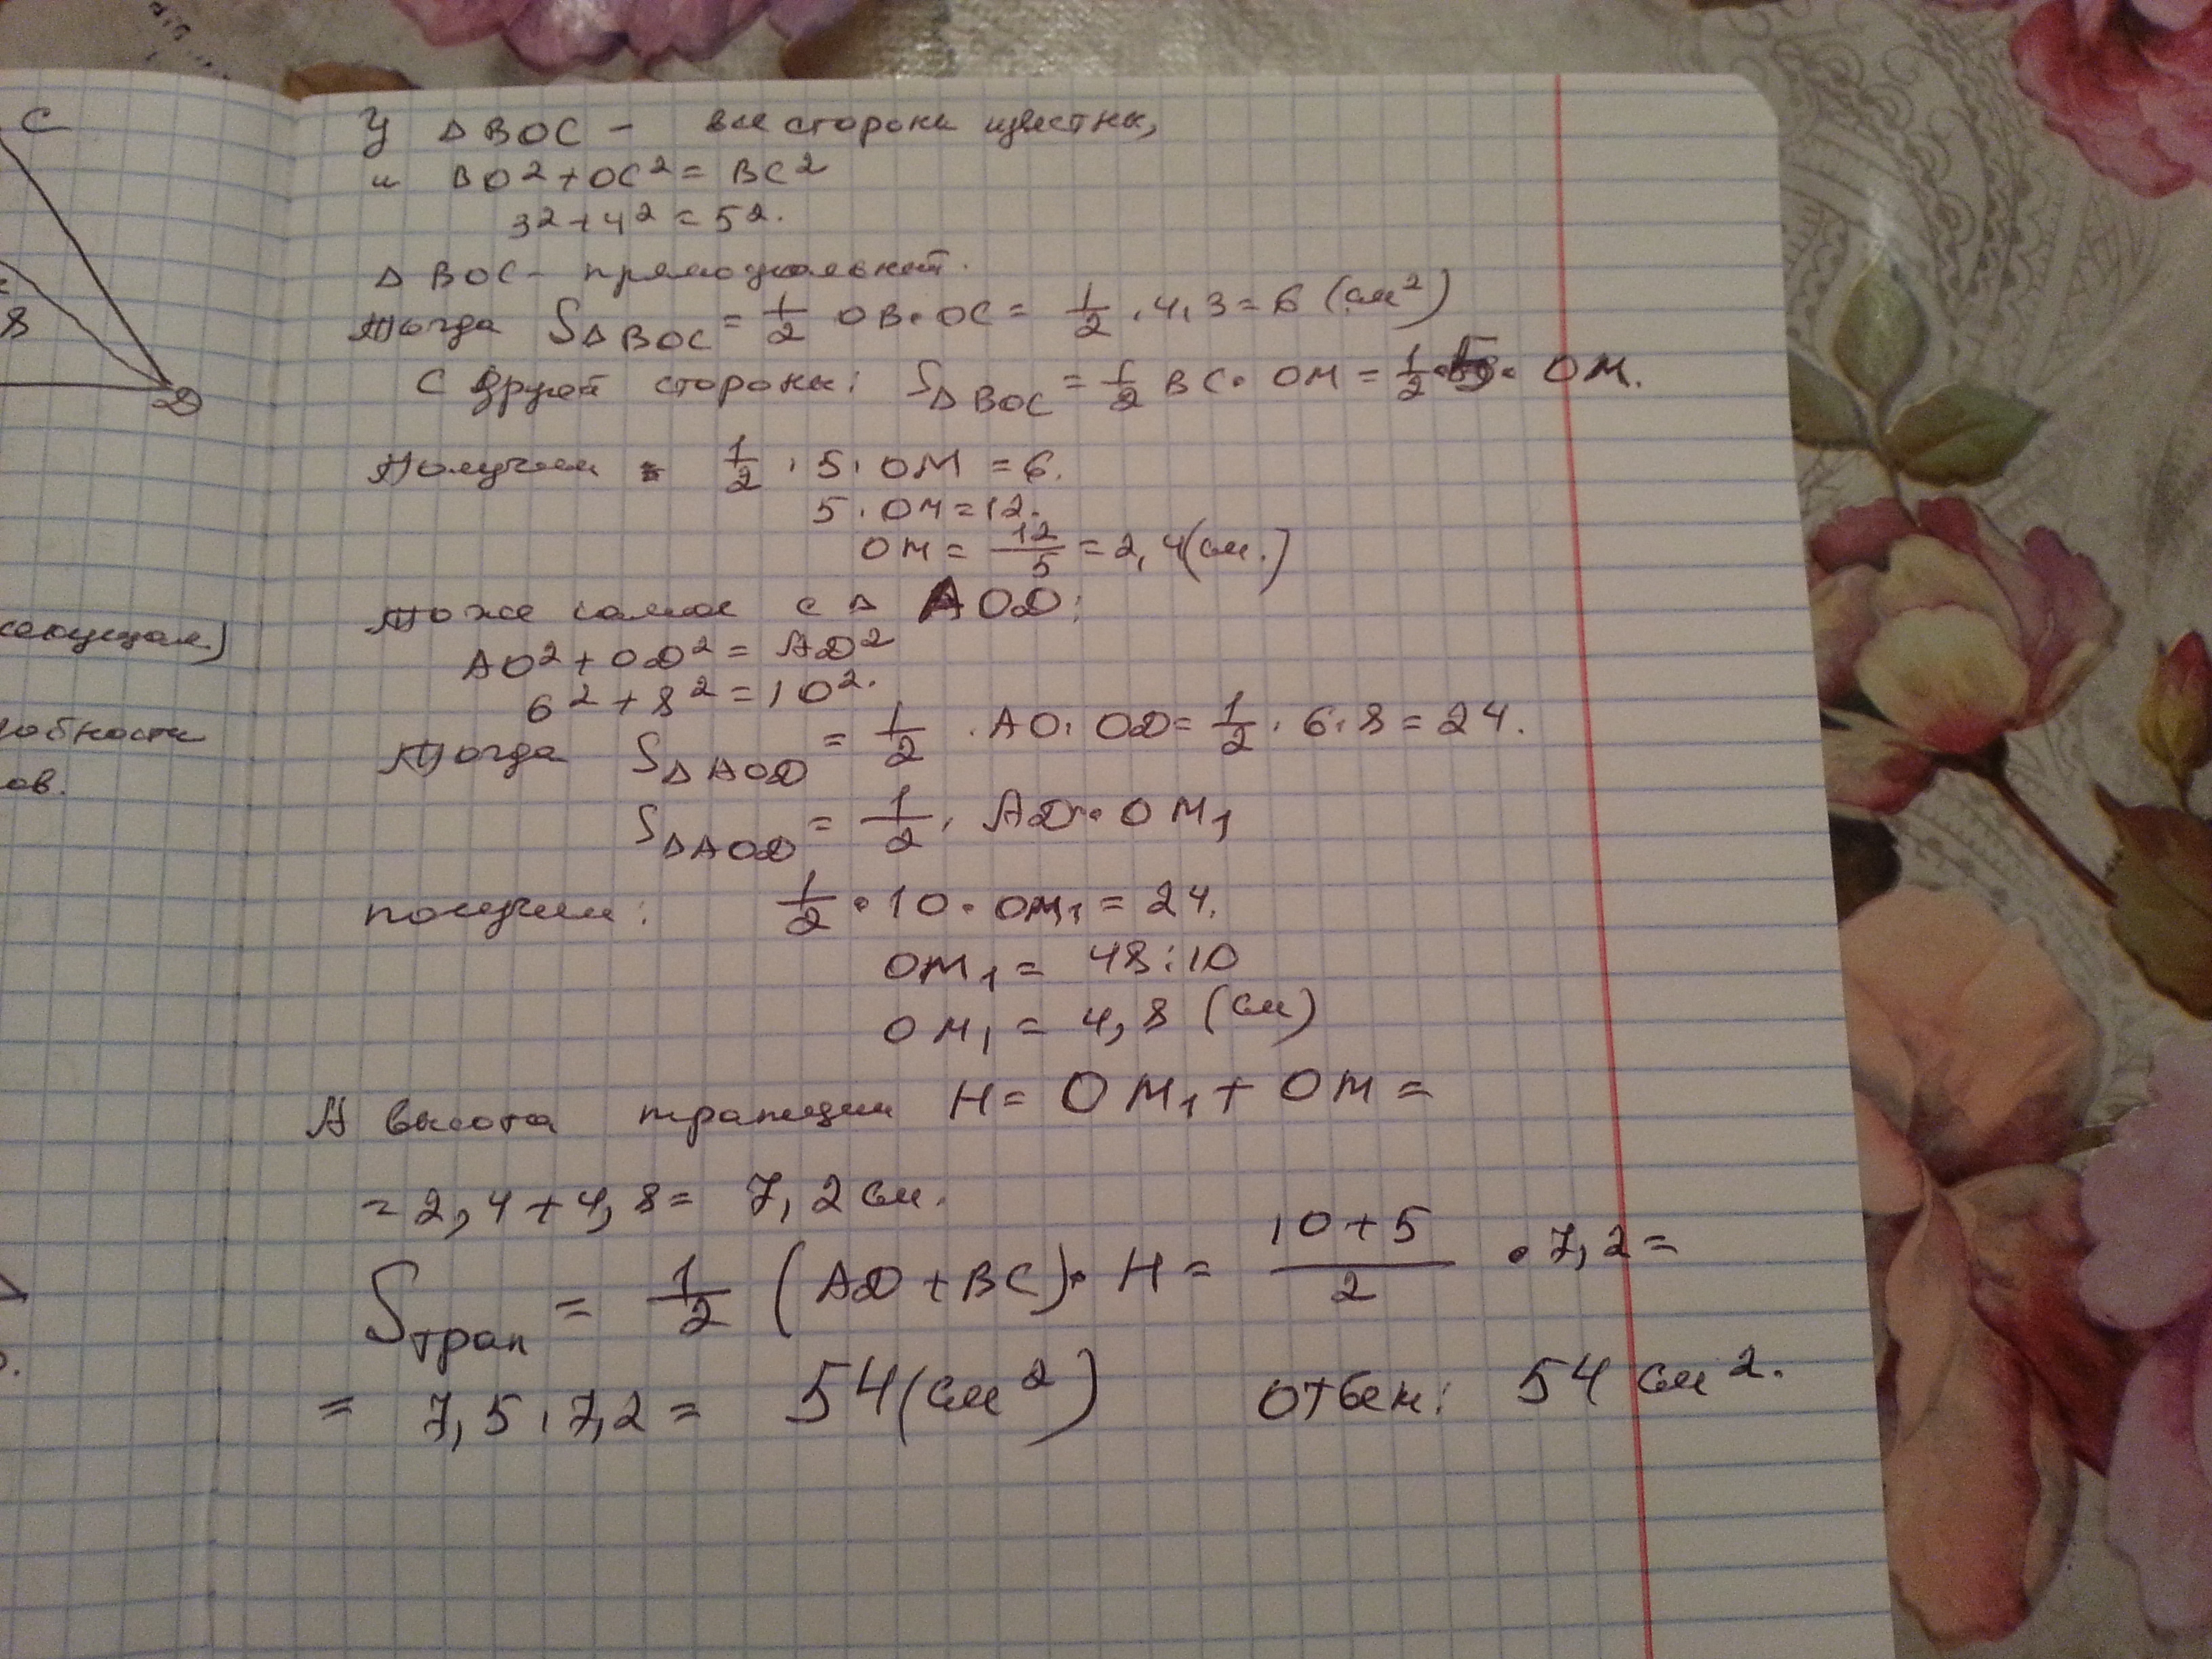 C
8
D
секущая.)
добности
ов.
У △BOC - все стороны известны,
и BO² + OC² = BC²
3² + 4² = 5².
△BOC - прямоугольный.
Тогда S△BOC = 1/2 OB · OC = 1/2 · 4 · 3 = 6 (см²)
С другой стороны: S△BOC = 1/2 BC · OM = 1/2 · 5 · OM.
Получим 1/2 · 5 · OM = 6.
5 · OM = 12.
OM = 12/5 = 2,4 (см.)
Тоже самое с △ AOD:
AO² + OD² = AD²
6² + 8² = 10².
Тогда S△AOD = 1/2 · AO · OD = 1/2 · 6 · 8 = 24.
S△AOD = 1/2 · AD · OM₁
получим: 1/2 · 10 · OM₁ = 24.
OM₁ = 48 : 10
OM₁ = 4,8 (см)
А высота трапеции H = OM₁ + OM =
= 2,4 + 4,8 = 7,2 см.
Sтрап = 1/2 (AD + BC) · H = (10+5)/2 · 7,2 =
= 7,5 · 7,2 = 54 (см²) Ответ: 54 см².